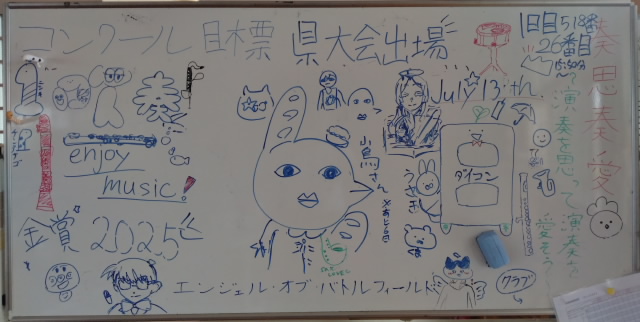 コンクール目標 県大会出場
1日目 518番
26番目
15:50分〜
July 13th.
奏思奏愛
演奏を思って演奏を
愛そう
enjoy
music!
金賞 2025
鳥さん
うさぎ
ダイコン
エンジェル・オブ・バトルフィールド
クラブ